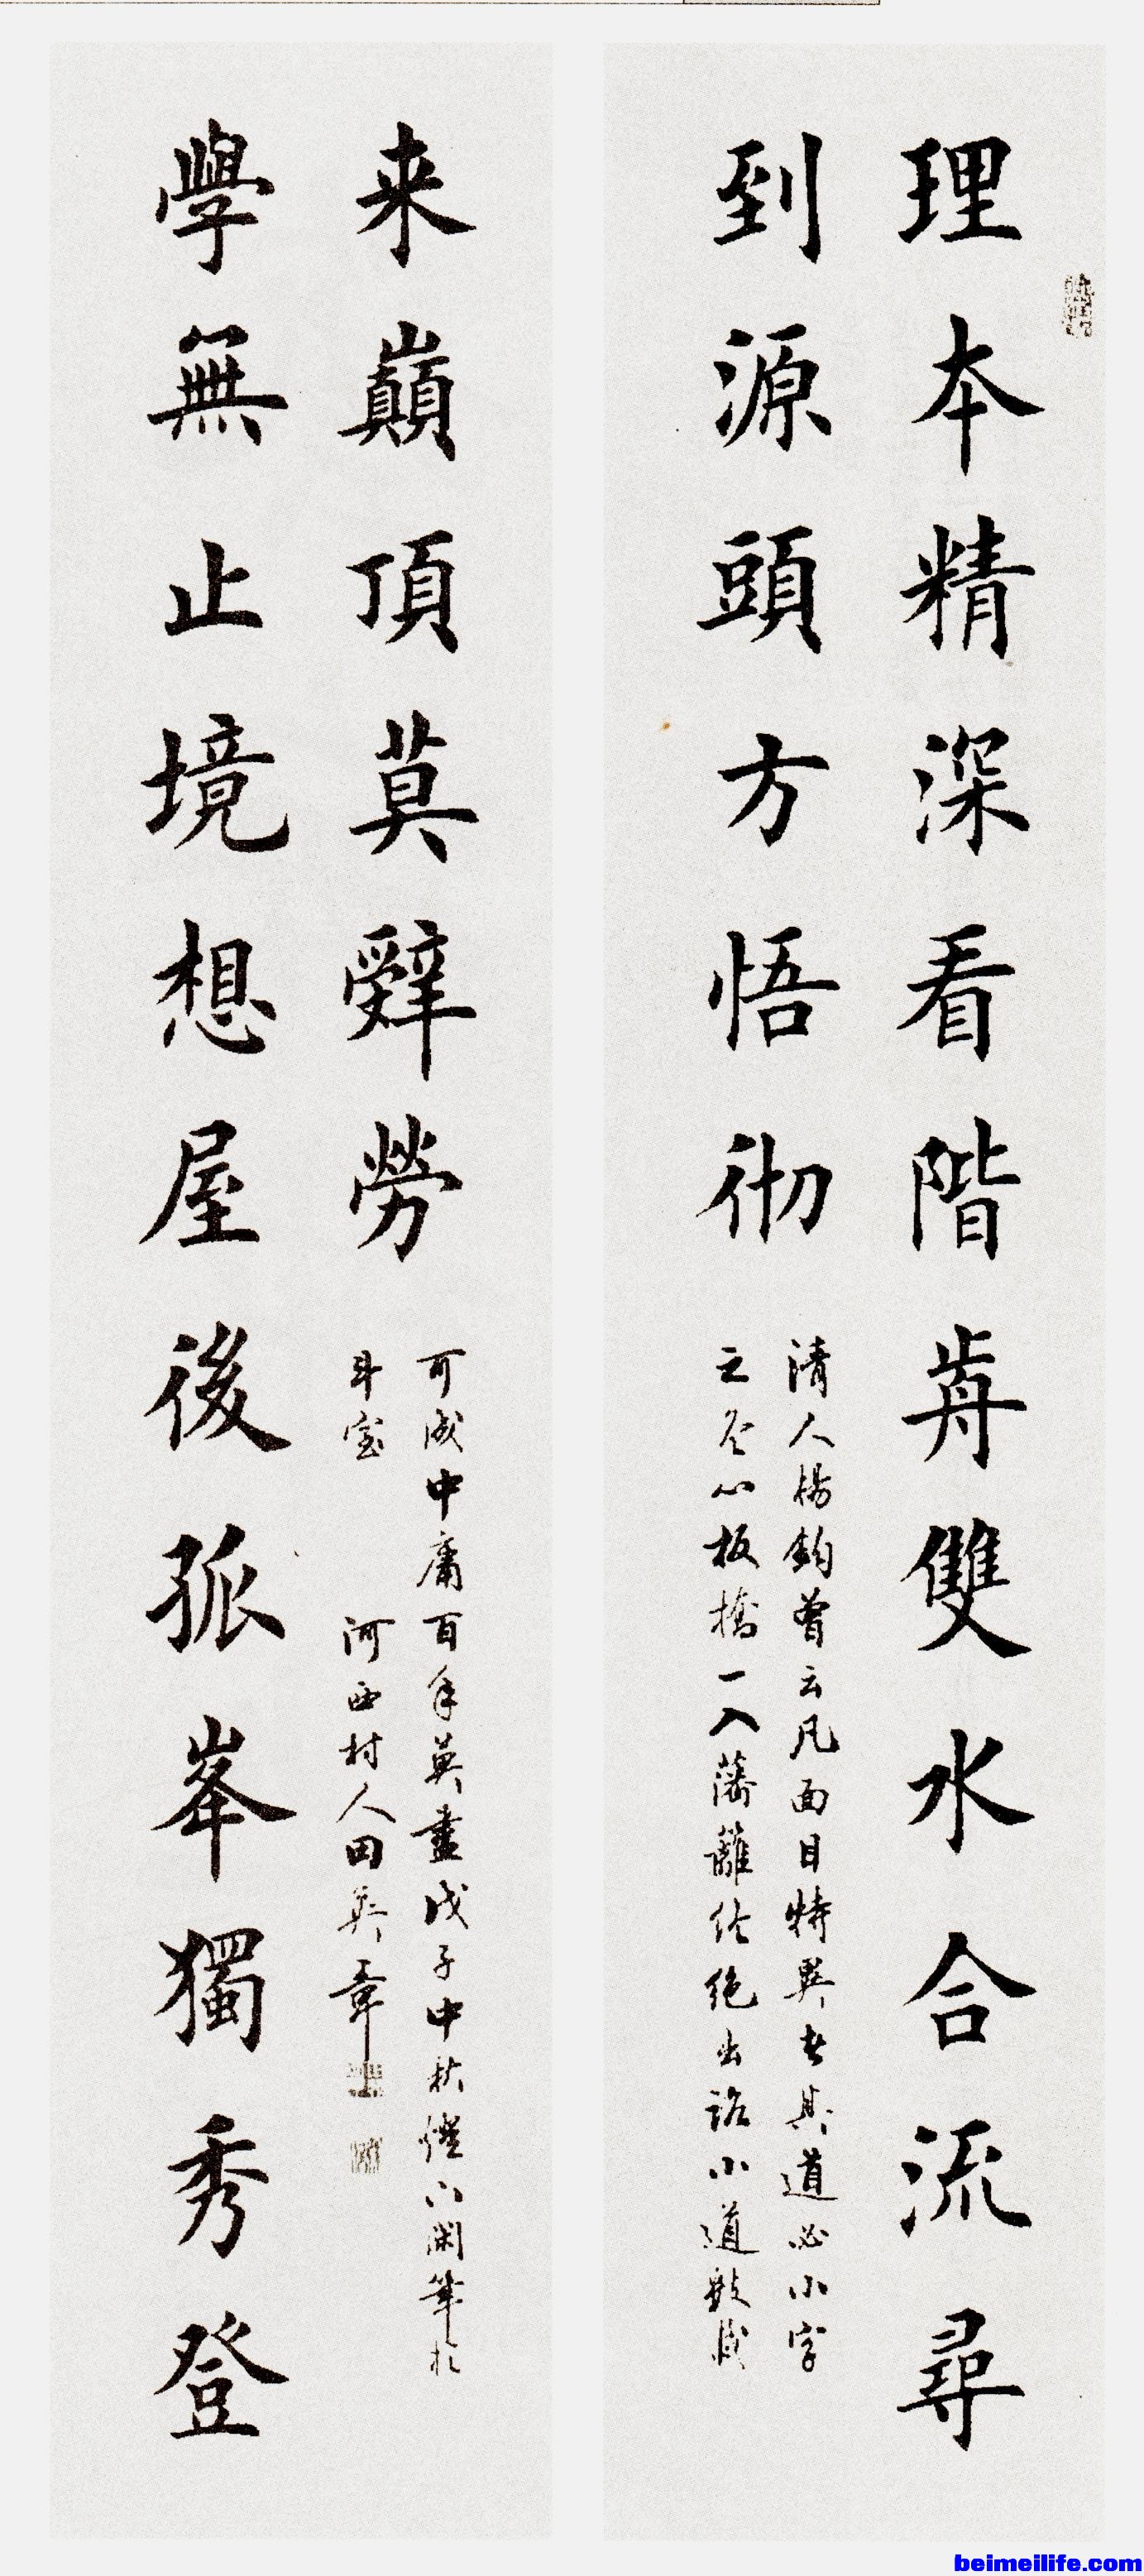 理本精深看階前雙水合流尋
到源頭方悟彻
清人楊鈞曾云凡面目特異者其道必小字
之冬心板橋一入藩籬後絕出路小道敗成
来巔頂莫辭勞
學無止境想屋後孤峯獨秀登
可成中庸百年莫盡戊子中秋 閑筆於
斗室 河西村人田英章
beimeilife.com